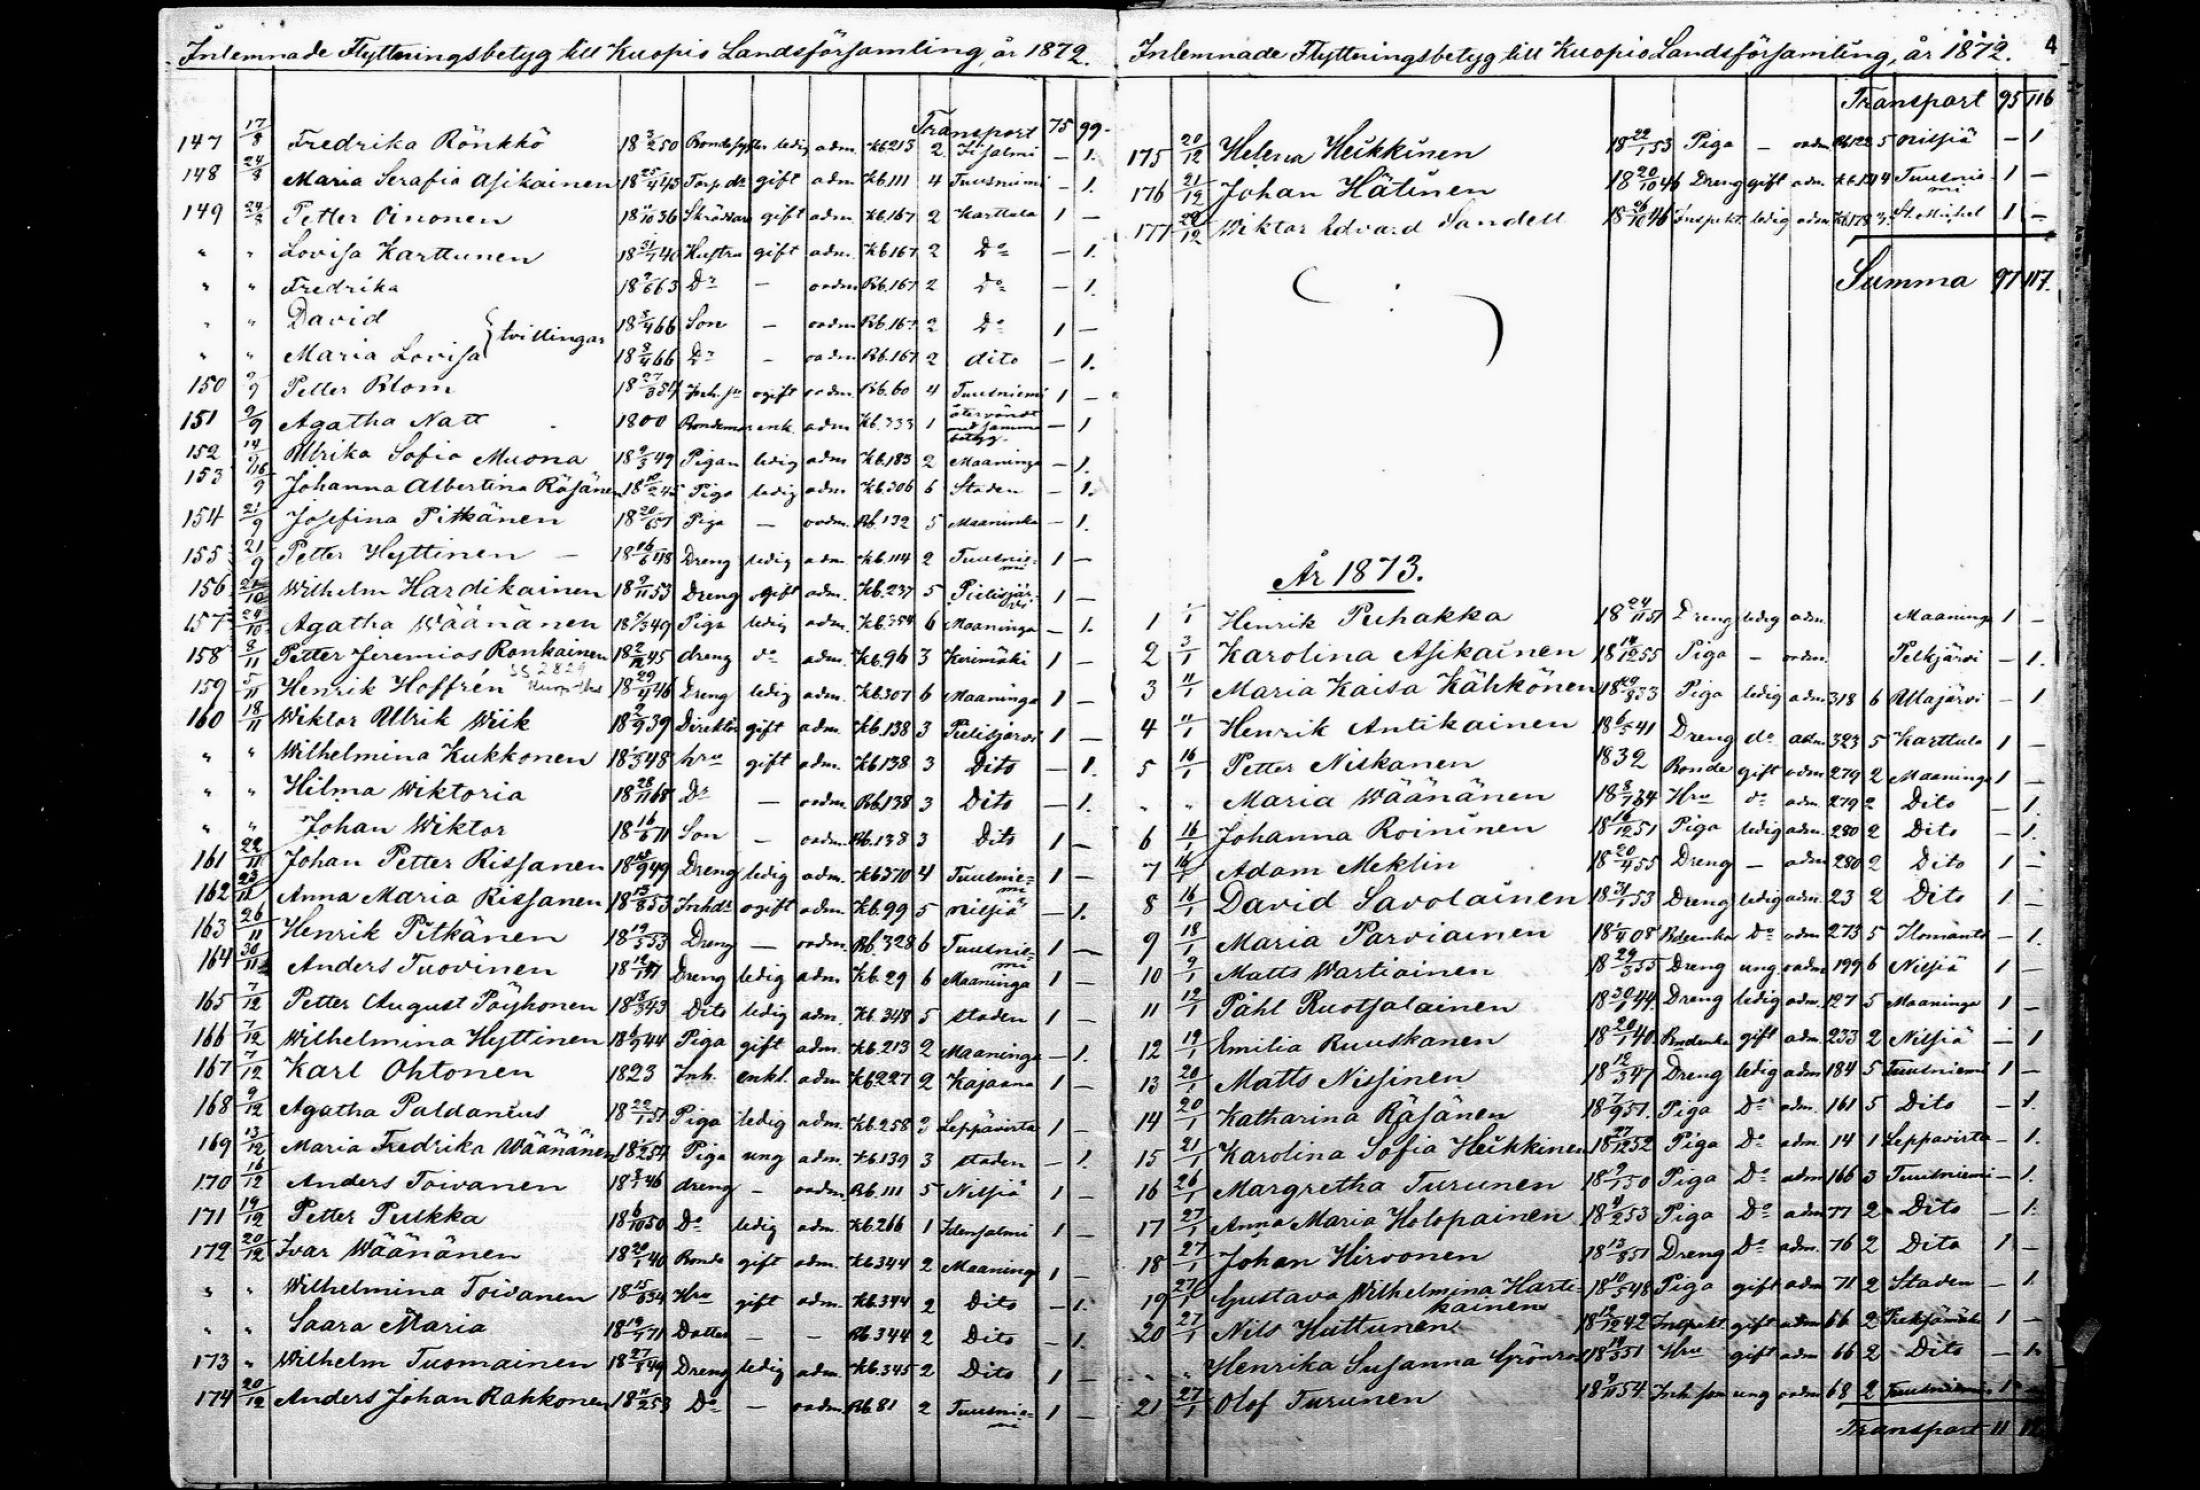 Inlemnade Flyttningsbetyg till Kuopio Landsförsamling, år 1872.
Transport 75 99
147 17/8 Fredrika Rönkkö 18 3/2 50 ledig adm. Kb.215 2 Iisalmi — 1.
148 24/8 Maria Serafia Asikainen 18 25/4 45 Torp. dr gift adm Kb.111 4 Tuusniemi — 1.
149 Petter Oinonen 18 11/10 36 gift adm. Kb.167 2 Karttula 1 —
" " Lovisa Karttunen 18 31/1 40 Hustru gift adm. Kb.167 2 Do — 1.
" " Fredrika Dr — oadm Rb.167 2 Do — 1.
" " David 18 3/4 66 Son — oadm Rb.167 2 Do 1 —
tvillingar
" " Maria Lovisa 18 3/4 66 Dr — oadm Rb.167 2 dito — 1.
150 9/9 Petter Blom 18 27/3 54 ogift oadm. Rb.60 4 Tuusniemi 1 —
151 9/9 Agatha Natt 1800 enk. adm Kb.333 1 återvändt med samma betyg. — 1
152 14/9 Ulrika Sofia Muona 18 9/3 49 Pigan ledig adm Kb.183 2 Maaninga — 1.
153 16/9 Johanna Albertina Räsänen 18 10/2 45 Piga ledig adm Kb.306 6 Staden — 1.
154 21/9 Josefina Pitkänen 18 20/6 57 Piga — oadm. Rb.132 5 Maaninka — 1.
155 21/9 Petter Hyttinen — 18 16/6 48 Dreng ledig adm. Kb.114 2 Tuusnie-mi 1 —
156 21/10 Wilhelm Hardikainen 18 9/11 53 Dreng ogift adm. Kb.237 5 Pielisjär-vi 1 —
157 24/10 Agatha Wäänänen Piga ledig adm. Kb.354 6 Maaninga — 1.
158 8/11 Petter Jeremias Ronkainen 18 2/12 45 dreng do adm. Kb.96 3 Kerimäki 1 —
159 5/11 Henrik Hoffrén 18 29/11 46 Dreng ledig adm. Kb.307 6 Maaninga 1 —
160 18/11 Wiktor Ulrik Wiik 18 2/9 39 Direktör gift adm. Kb.138 3 Pielisjärvi 1 —
" " Wilhelmina Kukkonen hru gift adm. Kb.138 3 Dito — 1.
" " Hilma Wiktoria 18 28/11 68 Dr — oadm. Rb.138 3 Dito — 1.
" " Johan Wiktor 18 16/6 71 Son — oadm. Rb.138 3 Dito 1 —
161 22/11 Johan Petter Rissanen Dreng ledig adm. Kb370 4 Tuusnie-mi 1 —
162 23/11 Anna Maria Rissanen 18 15/8 53 Inhdr ogift adm. Kb.99 5 Nilsiä — 1.
163 26/11 Henrik Pitkänen 18 19/5 53 Dreng — oadm. Rb.328 6 Tuusnie-mi 1 —
164 30/11 Anders Tuovinen Dreng ledig adm. Kb.29 6 Maaninga 1 —
165 7/12 Petter August Pöyhonen 18 18/3 43 Dito ledig adm. Kb.348 5 staden 1 —
166 7/12 Wilhelmina Hyttinen 18 6/9 44 Piga gift adm. Kb.213 2 Maaninga — 1.
167 7/12 Karl Ohtonen 1823 Inh. enkl. adm Kb227 2 Kajaana 1 —
168 9/12 Agatha Paldanius 18 22/1 51 Piga ledig adm. Kb.258 3 Leppävirta 1 —
169 13/12 Maria Fredrika Wäänänen Piga ung adm. Kb139 3 staden — 1.
170 16/12 Anders Toivanen dreng — oadm. Rb.111 5 Nilsiä 1 —
171 19/12 Petter Pulkka 18 6/10 50 Do ledig adm. Kb.266 1 Idensalmi 1 —
172 20/12 Ivar Wäänänen 18 20/1 40 Bonde gift adm. Kb344 2 Maaninga 1 —
" " Wilhelmina Toivanen 18 15/6 34 Hru gift adm. Kb.344 2 Dito — 1.
" " Saara Maria Dotter — — Rb.344 2 Dito — 1.
173 " Wilhelm Tuomainen 18 27/8 49 Dreng ledig adm. Kb.345 2 Dito 1 —
174 20/12 Anders Johan Rahkonen 18 11/2 53 Do — oadm. Rb 81 2 Tuusnie-mi 1 —
Inlemnade Flyttningsbetyg till Kuopio Landsförsamling, år 1872. 4
Transport 95 116
175 20/12 Helena Heikkinen 18 22/1 53 Piga — oadm. Rb122 5 Nilsiä — 1
176 21/12 Johan Hätinen 18 20/10 46 Dreng gift adm. 4 Tuusnie-mi 1 —
177 29/12 Wiktor Edvard Sandell 18 26/10 46 Inspekt. ledig adm. Kb178 3 St. Michel 1 —
Summa 97 117.
År 1873.
1 1/1 Henrik Puhakka 18 24/11 51 Dreng ledig adm. Maaninga 1 —
2 3/1 Karolina Asikainen 18 14/12 55 Piga — oadm. Pelkjärvi — 1.
3 11/1 Maria Kaisa Kähkönen 18 29/8 33 Piga ledig adm 318 6 — 1
4 11/1 Henrik Antikainen 18 6/5 41 Dreng do adm. 323 5 Karttula 1 —
5 16/1 Petter Niskanen 1832 Bonde gift adm 279 2 Maaninga 1 —
" " Maria Wäänänen 18 8/7 34 Hru do adm. 279 2 Dito — 1.
6 16/1 Johanna Roininen 18 16/12 51 Piga ledig adm. 280 2 Dito — 1.
7 16/1 Adam Meklin 18 20/4 55 Dreng — adm 280 2 Dito 1 —
8 16/1 David Savolainen 18 31/1 53 Dreng ledig adm. 23 2 Dito 1 —
9 18/1 Maria Parviainen 18 1/4 08 Do adm 273 5 Ilomants — 1.
10 9/1 Matts Wartiainen 18 29/3 55 Dreng ung oadm 199 6 Nilsiä 1 —
11 19/1 Påhl Ruotsalainen 18 30/1 44 Dreng ledig adm. 127 5 Maaninga 1 —
12 19/1 Emilia Ruuskanen 18 20/1 40 gift adm. 233 2 Nilsiä — 1
13 20/1 Matts Nissinen 18 12/3 47 Dreng ledig adm 184 5 Tuusniemi 1 —
14 20/1 Katharina Räsänen 18 7/9 51 Piga Do adm. 161 5 Dito — 1.
15 21/1 Karolina Sofia Heikkinen 18 27/12 52 Piga Do adm. 14 1 Leppävirta — 1.
16 26/1 Margretha Turunen 18 9/1 50 Piga Do adm 166 3 Tuusniemi — 1.
17 27/1 Anna Maria Holopainen 18 4/2 53 Piga Do adm 77 2 Dito — 1.
18 27/1 Johan Hirvonen 18 13/8 51 Dreng Do adm. 76 2 Dito 1 —
19 27/1 Gustava Wilhelmina Harti-kainen 18 10/5 48 Piga gift adm 71 2 Staden — 1.
20 27/1 Nils Huttunen 18 19/12 42 Inspekt. gift adm 66 2 1 —
" " Henrika Susanna Grönroos 18 14/3 51 Hru gift adm 66 2 Dito — 1.
21 27/1 Olof Turunen 18 9/11 54 Inh. son ung oadm 68 2 Tuusniemi 1 —
Transport 11